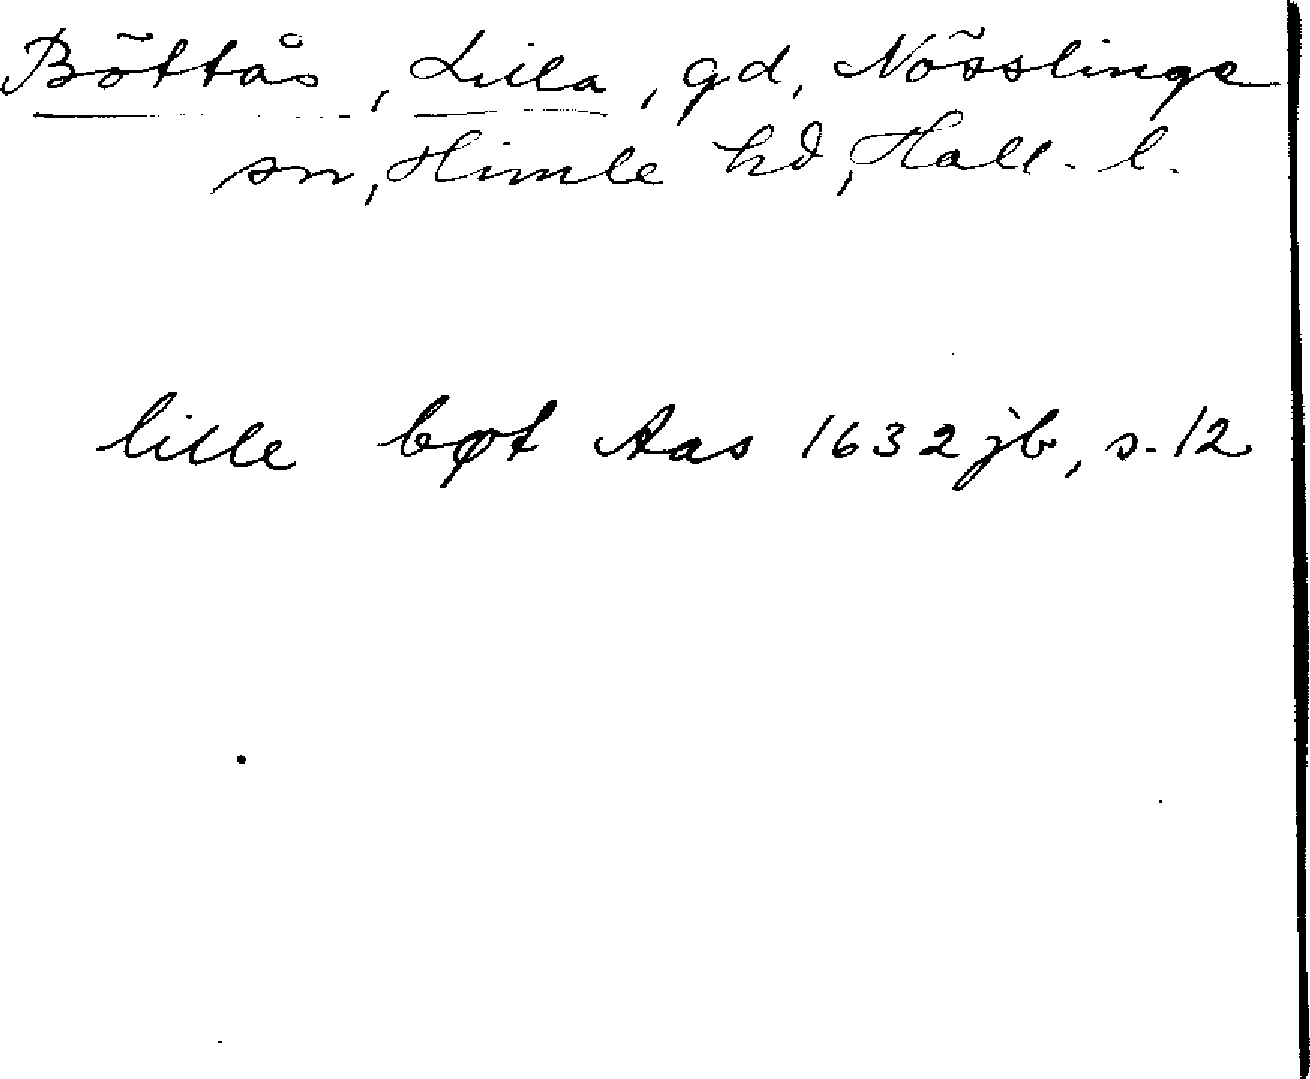 Böttås, Lilla, gd, Nösslinge
sn, Himle hd, Hall. l.
lille bøt Aas 1632 jb, s. 12